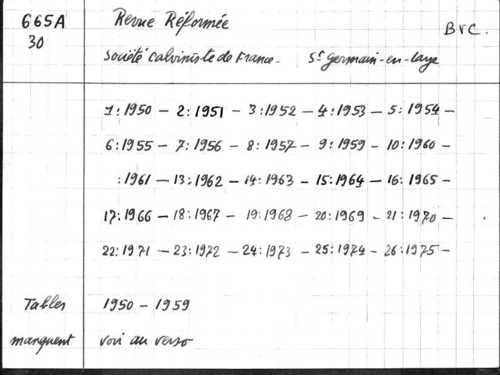 665A Revue Réformée BrC.
30
Société calviniste de France. St Germain-en-Laye
1:1950 – 2:1951 – 3:1952 – 4:1953 – 5:1954 –
6:1955 – 7:1956 – 8:1957 – 9:1959 – 10:1960 –
:1961 – 13:1962 – 14:1963 – 15:1964 – 16:1965 –
17:1966 – 18:1967 – 19:1968 – 20:1969 – 21:1970 –
22:1971 – 23:1972 – 24:1973 – 25:1974 – 26:1975 –
Tables 1950 – 1959
manquent voir au verso